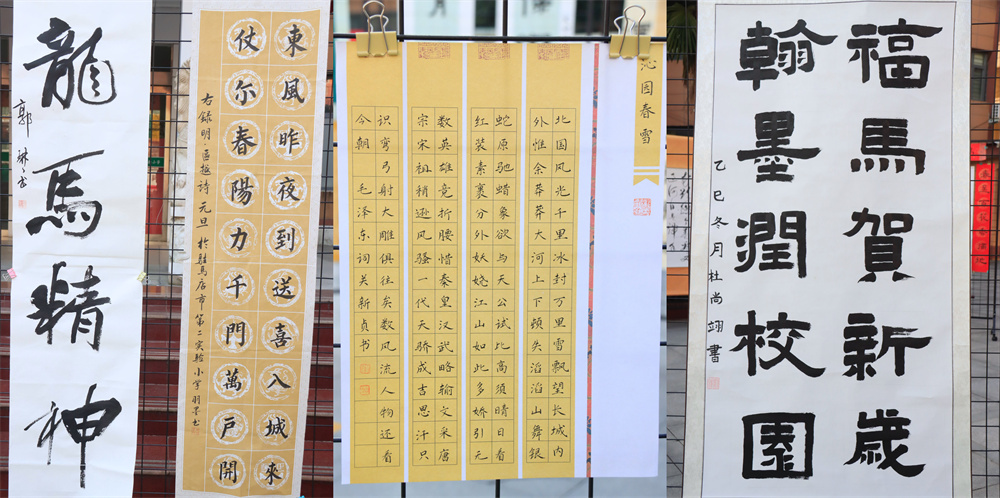 龍馬精神
郭
東風昨夜到送喜入城來
仗尔春陽力千門萬戶開
右錄明·區越诗 元旦 於駐馬店市第二实验小学羽墨书
沁园春雪
北国风光千里冰封万里雪飘望长城内
外惟余莽莽大河上下顿失滔滔山舞银
蛇原驰蜡象欲与天公试比高须晴日看
红装素裹分外妖娆江山如此多娇引无
数英雄竞折腰惜秦皇汉武略输文采唐
宗宋祖稍逊风骚一代天骄成吉思汗只
识弯弓射大雕俱往矣数风流人物还看
今朝 毛泽东词关新贞书
福馬賀新歲
翰墨潤校園
乙巳冬月杜尚翊書